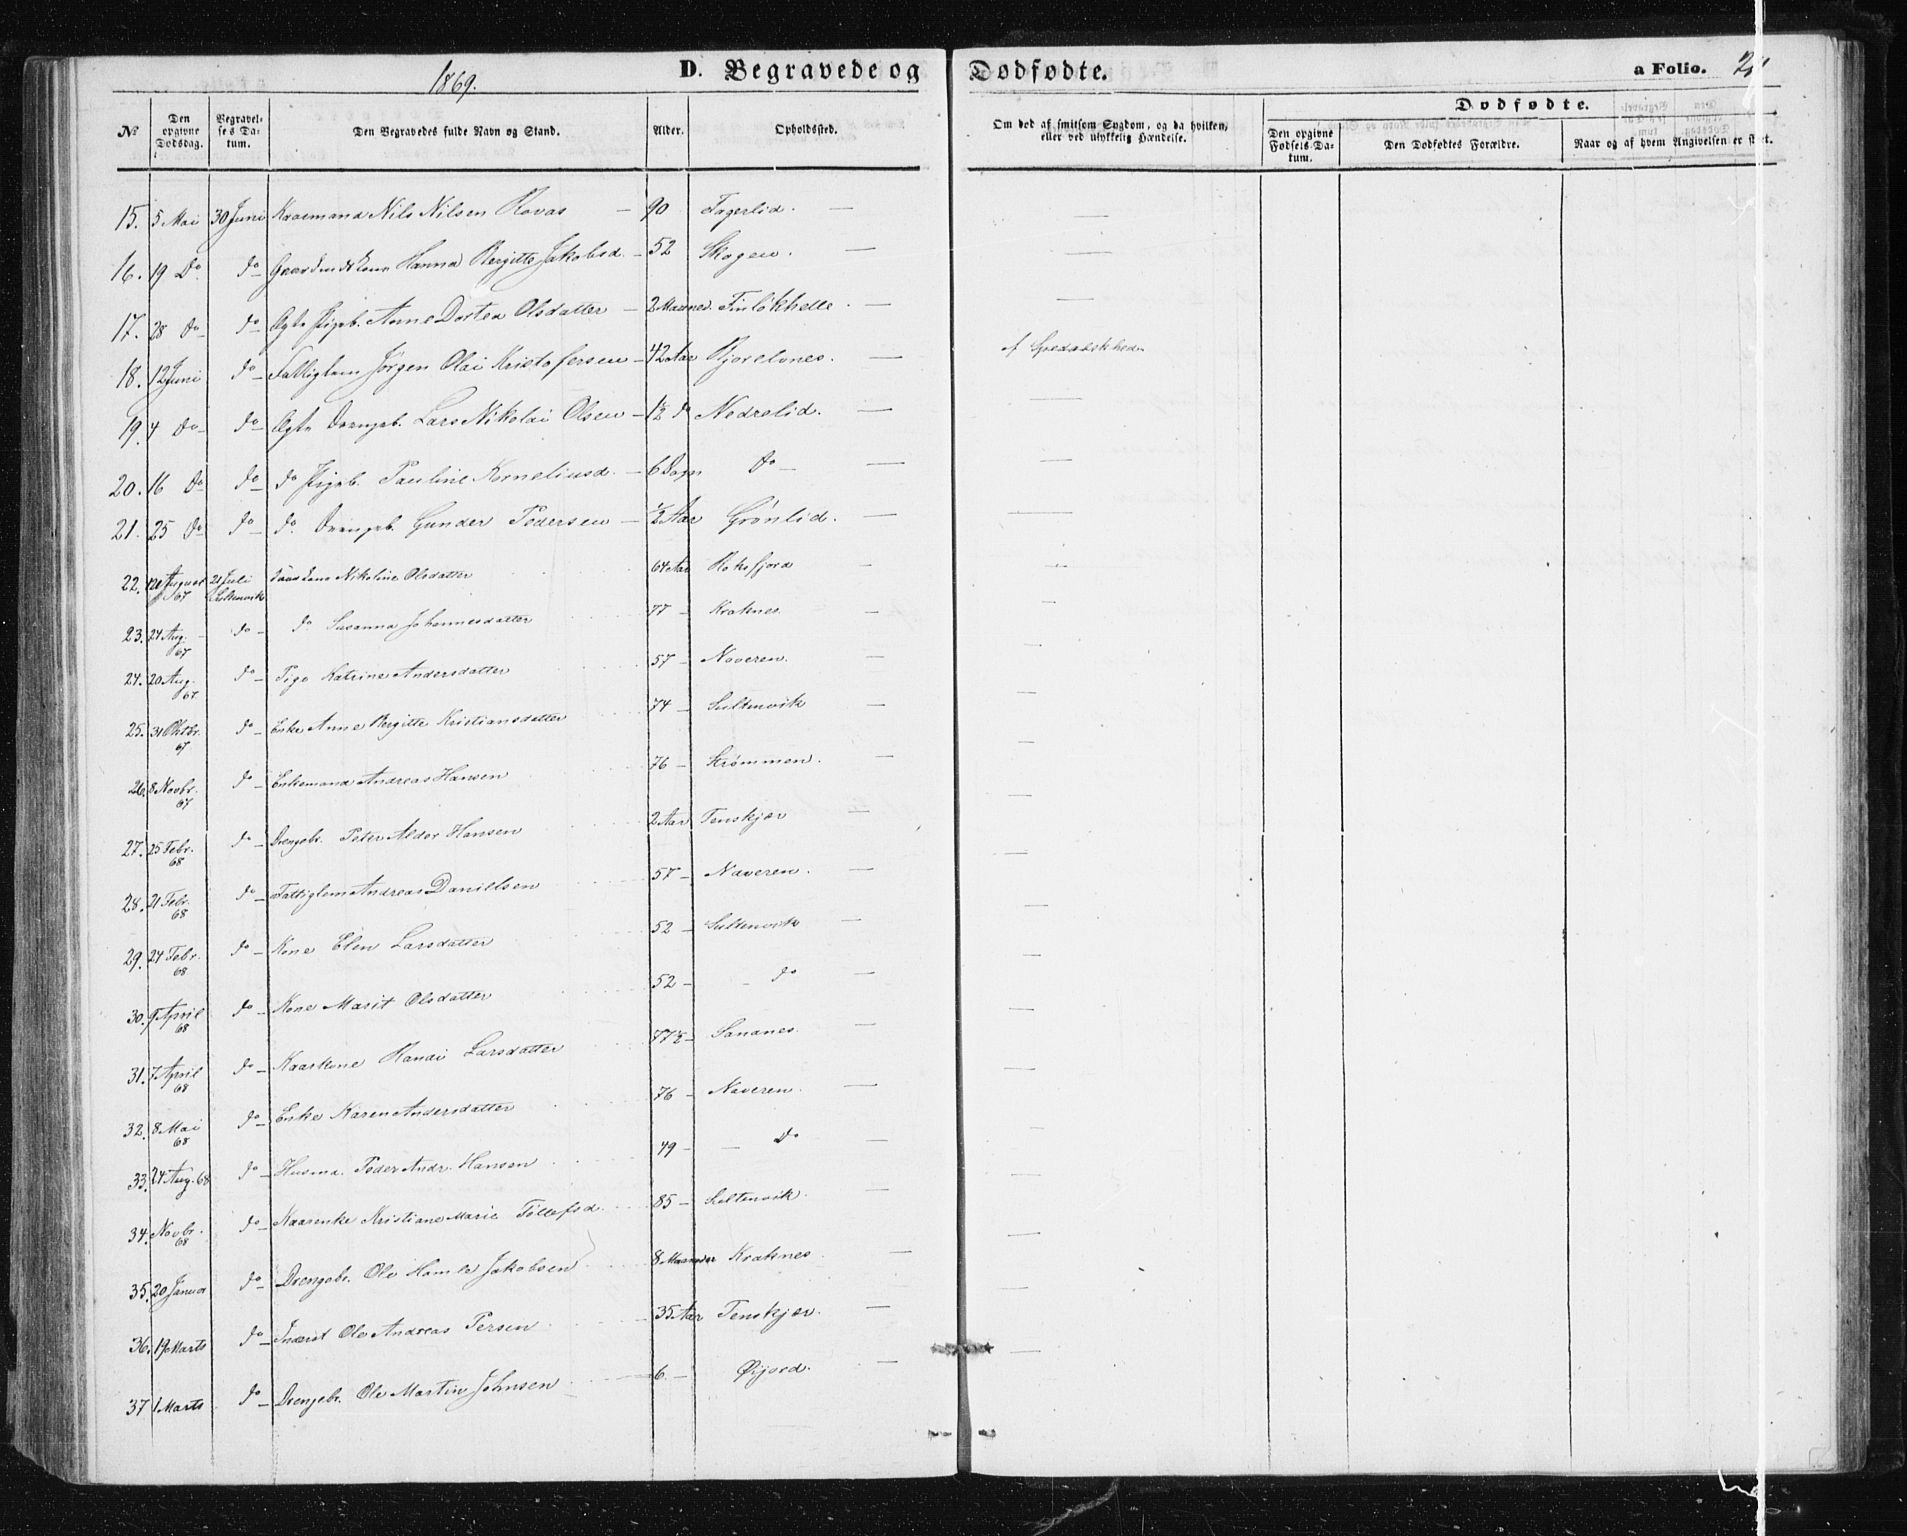 1869.
D. Begravede og Dødfødte.
a Folio.
Dødfødte.
№
Den opgivne Dødsdag.
Begravelses Datum.
Den Begravedes fulde Navn og Stand.
Alder.
Opholdssted.
Om død af smitsom Sygdom, og da hvilken, eller ved ulykkelig Hændelse.
Den opgivne Fødsels Datum.
Den Dødfødtes Forældre.
Naar og af hvem Angivelsen er skeet.
15. 5 Mai 30 Juni Kaarmand Nils Nilsen 90 Fagerlid. —
16. 19 Do do Hanna Bergitte Jakobsd. 52 Skogen. —
17. 28 do do Ægte Pigeb. Anne Dortea Olsdatter 2 Maaned. Finløkhelle. —
18. 12 Juni do Fattiglem Jørgen Olai Kristofersen 42 Aar — af Spedalskhed
19. 4 do do Ægte Drengeb. Lars Nikolai Olsen 1½ do Nedrelid. —
20. 16 do do do Pigeb. Pauline Korneliusd. 6 Dage do —
21. 25 do do do Drengeb. Gunder Pedersen ½ Aar Grønlid. —
22. August 67 21 Juli Nikoline Olsdatter 64 Aar —
23. 24 Aug. 67 do do Susanna Johannesdatter 77 Kraknes. —
24. 20 Aug. 67 do Pige Katrine Andersdatter 57 Naveren. —
25. 31 Oktbr. 67 do Enke Anne Bergitte Kristiansdatter 74 Sultenvik —
26. 8 Novbr. 67 do Enkemand Andreas Hansen 76 Strømmen. —
27. 25 Febr. 68 do Drengebr. Peter Aldor Hansen 2 Aar Tenskjær —
28. 21 Febr. 68 do Fattiglem Andreas Danielsen 57 Naveren. —
29. 24 Febr. 68 do Kone Elen Larsdatter 52 Sultenvik —
30. 9 April 68 do Kone Marit Olsdatter 52 do —
31. 7 April 68 do Kaarkone Randi Larsdatter 77½ Sandnes. —
32. 8 Mai 68 do Enke Karen Andersdatter 76 Naveren. —
33. 24 Aug. 68 do Husma. Peder Andr. Hansen 49 Do —
34. Novbr. 68 do Kaarenke Kristiane Marie Tollefsd. 85 Sultenvik. —
35. 20 Januar do Drengebr. Ole Jakobsen 8 Maaneder Kraknes —
36. 19 Marts do Inderst Ole Andreas Persen 35 Aar Tenskjær. —
37 1 Marts do Drengebr. Ole Martin Johnsen 6 Øijord. —